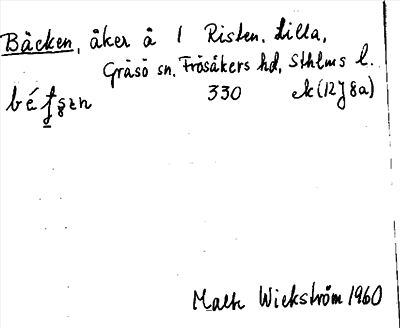 Bäcken, åker å 1 Risten. Lilla,
Gräsö sn, Frösåkers hd, Sthlms l.
330 ek (12J8a)
Malte Wickström 1960